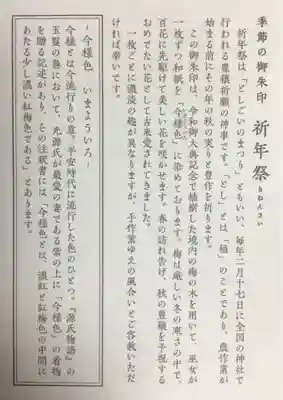 季節の御朱印 祈年祭
きねんさい
祈年祭は、「としごいのまつり」ともいい、毎年二月十七日に全国の神社で
行われる五穀豊穣祈願の神事です。「とし」とは「稲」のことであり、農作業が
始まる前にその年の秋の実りと豊作を祈ります。
この御朱印は、令和御大典記念で植樹した境内の梅の木を用いて、巫女が
一枚ずつ和紙を「今様色」に染めております。梅は厳しい冬の寒さの中で、
百花に先駆けて美しい花を咲かせます。春の訪れ告げ、秋の豊穣を予祝する
おめでたい花として古来愛されてきました。
一枚ごとに濃淡の趣が異なりますが、手作業ゆえの風合いとご容赦いただ
ければ幸いです。
~今様色 いまよういろ~
今様とは今流行りの意。平安時代に流行した色のひとつ。『源氏物語』の
玉鬘の巻において、光源氏が最愛の妻である紫の上に「今様色」の着物
を贈る記述があり、その注釈書には、「今様色とは、濃紅と紅梅色の中間に
あたる少し濃い紅梅色である」とあります。